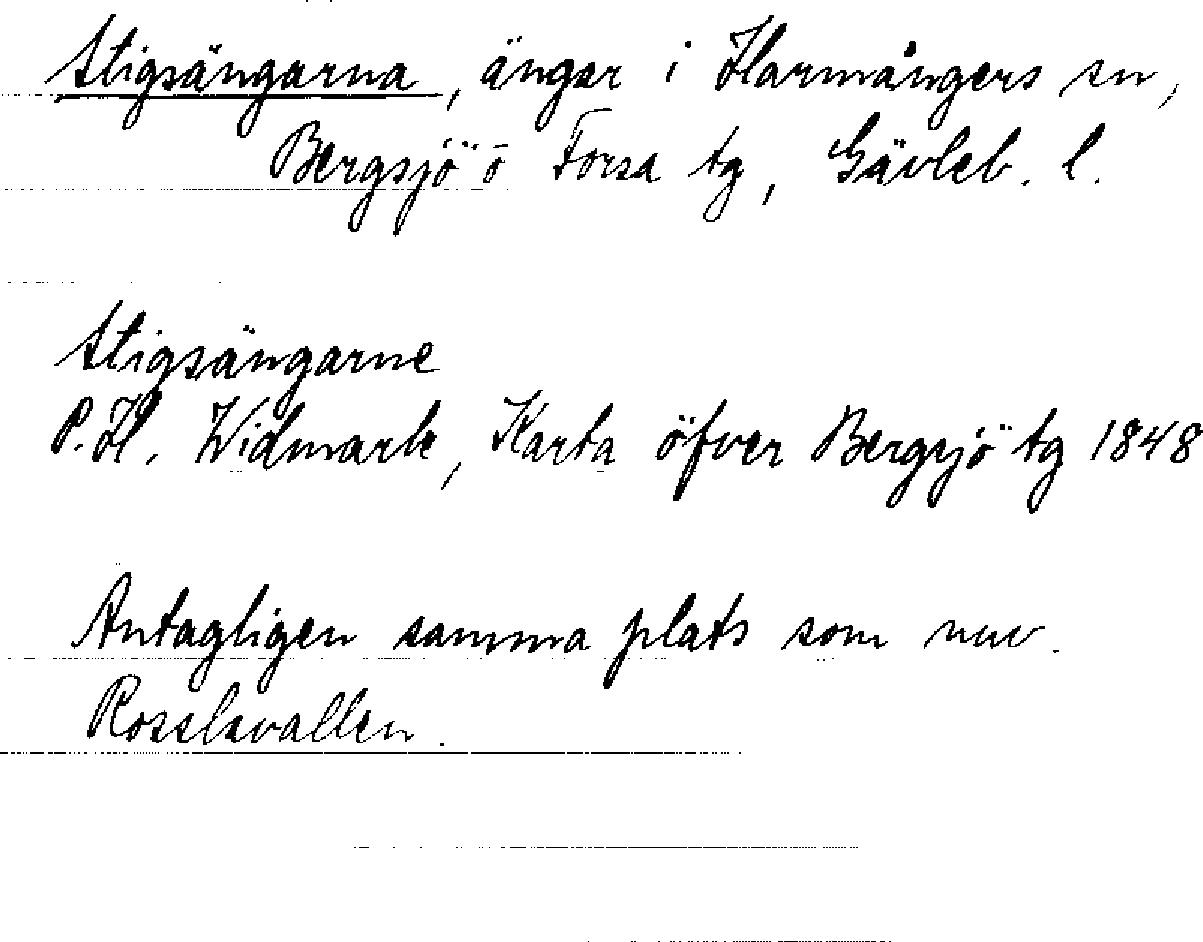 Stigsängarna, ängar i Harmångers sn,
Bergsjö o Forsa tg, Gävleb. l.
Stigsängarne
P. H. Widmark, Karta öfver Bergsjö tg 1848
Antagligen samma plats som nuv.